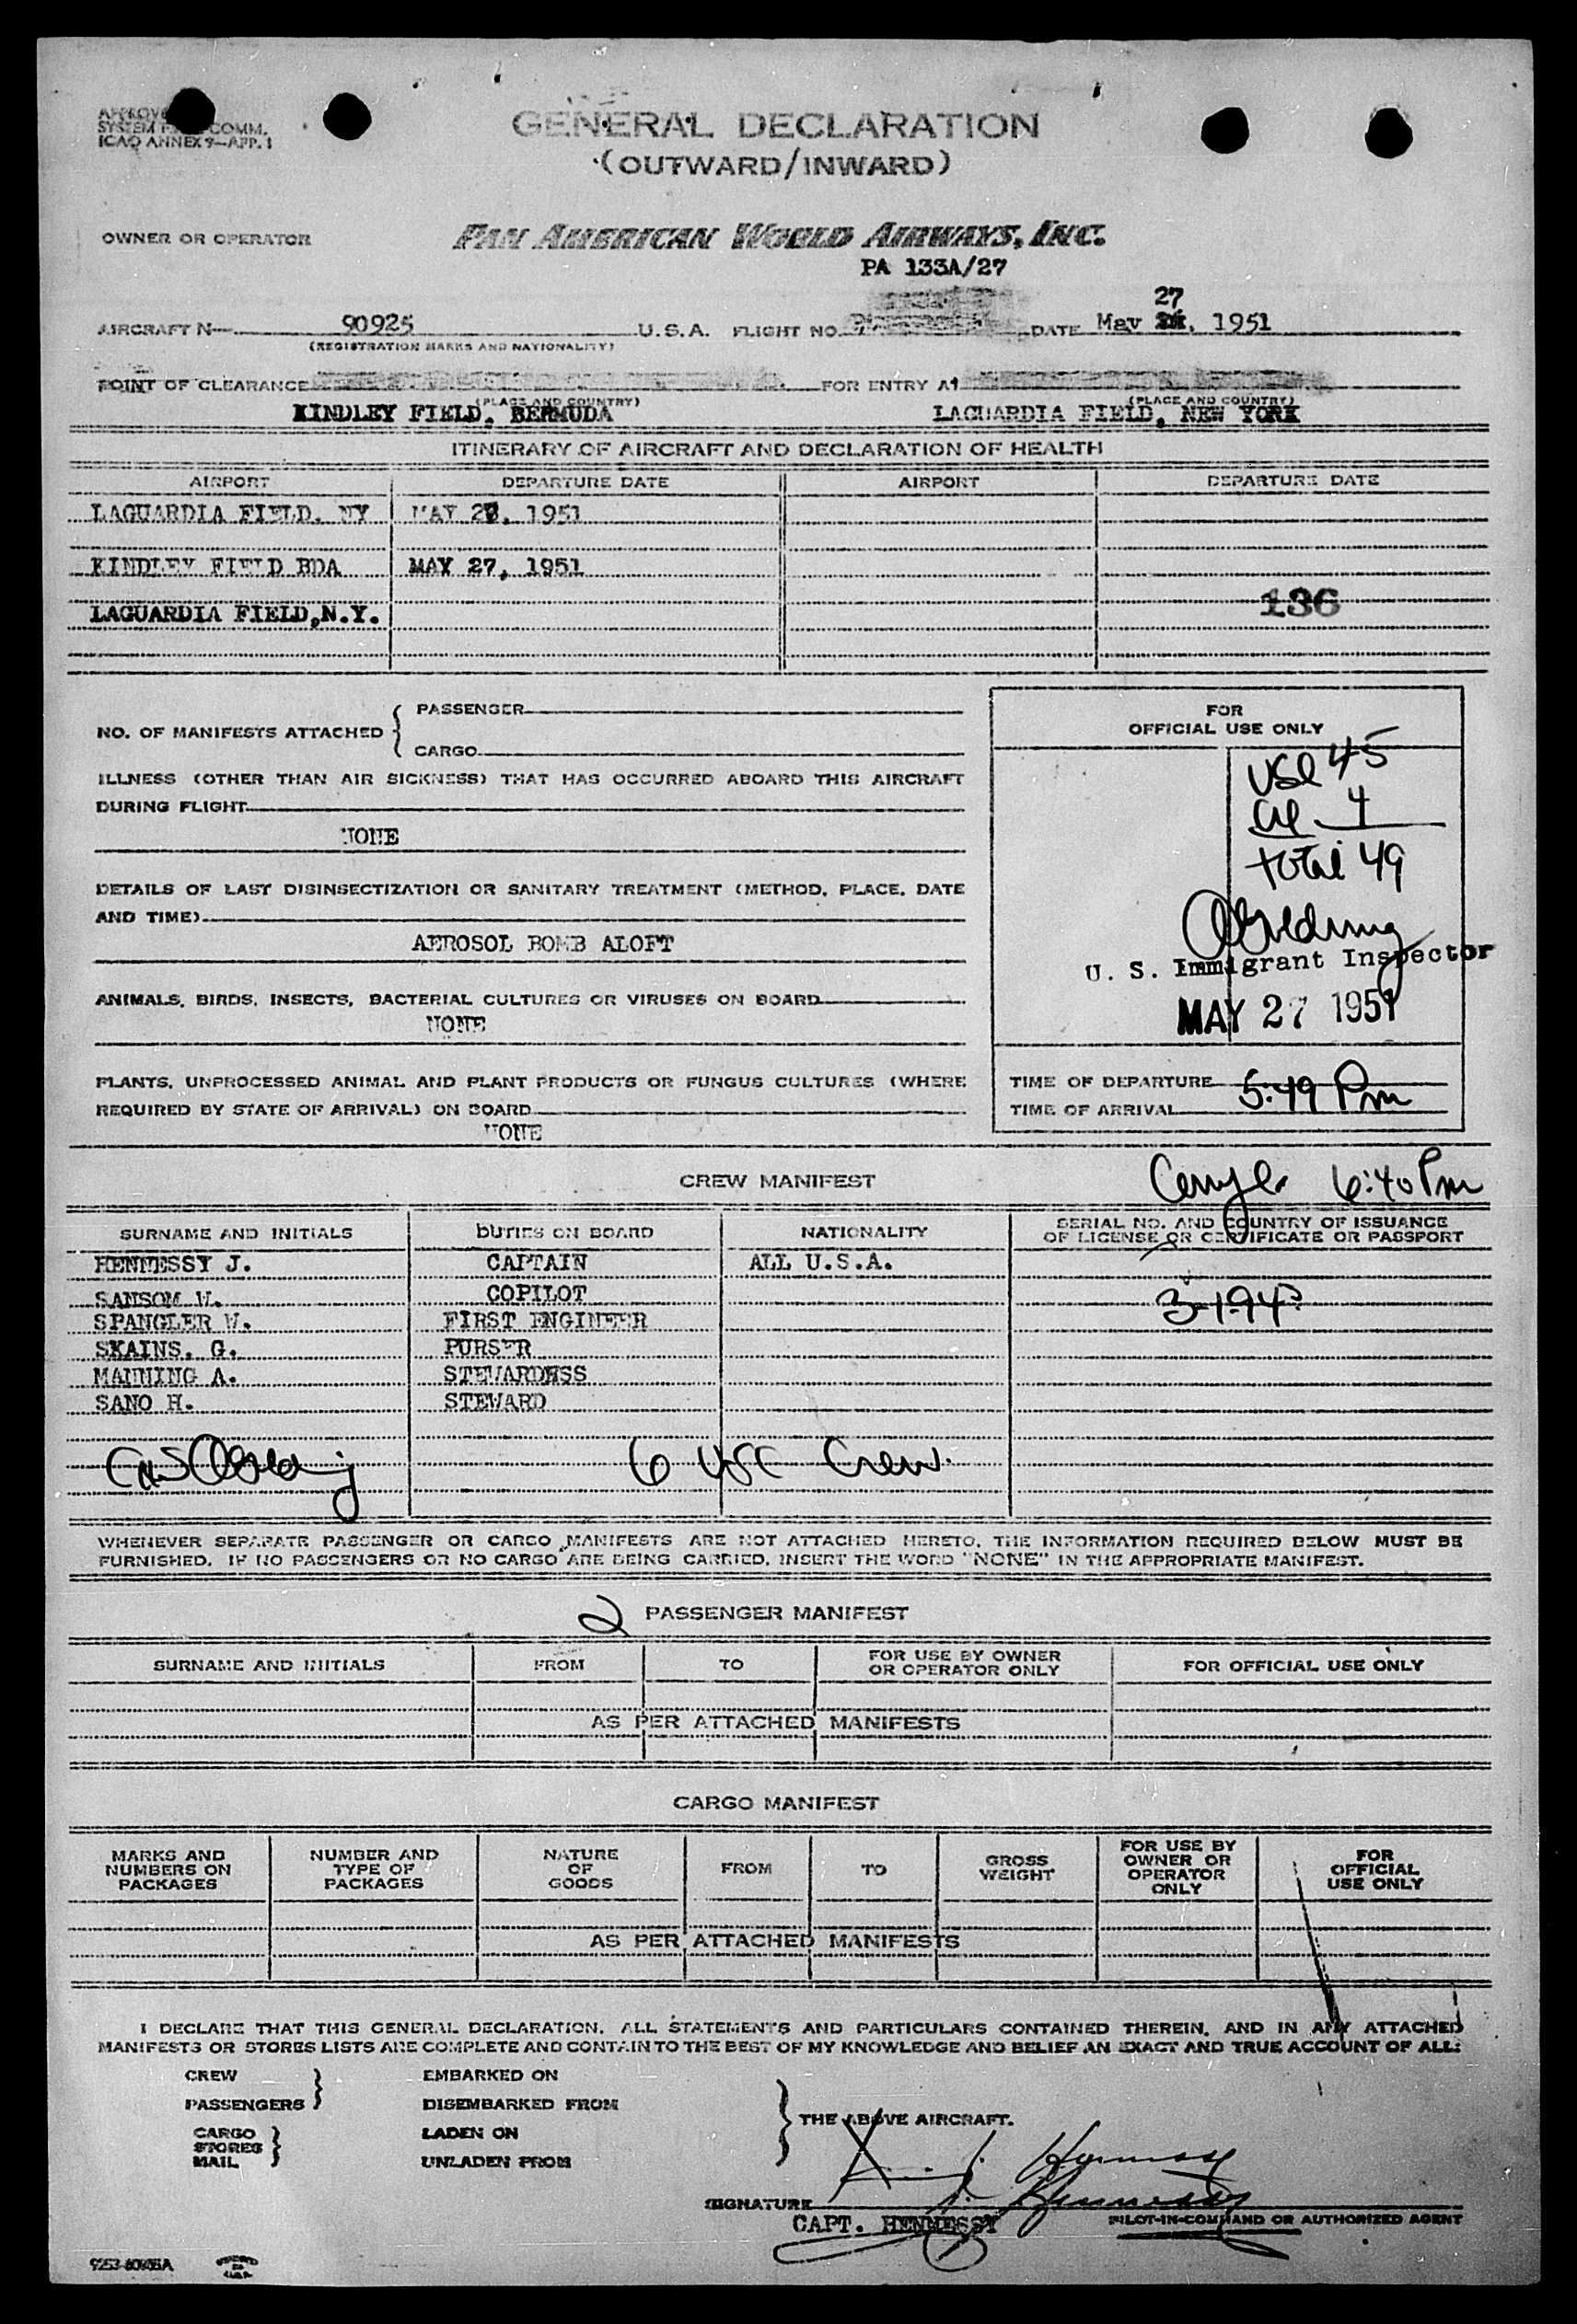 GENERAL DECLARATION
(OUTWARD/INWARD)
SYSTEM COMM.
ICAO ANNEX 9—APP. 1
OWNER OR OPERATOR PAN AMERICAN WORLD AIRWAYS, INC.
PA 133A/27
27
AIRCRAFT N— 90925 U.S.A. FLIGHT NO. DATE May , 1951
(REGISTRATION MARKS AND NATIONALITY)
POINT OF CLEARANCE FOR ENTRY AT
(PLACE AND COUNTRY) (PLACE AND COUNTRY)
KINDLEY FIELD, BERMUDA LAGUARDIA FIELD, NEW YORK
ITINERARY OF AIRCRAFT AND DECLARATION OF HEALTH
AIRPORT DEPARTURE DATE AIRPORT DEPARTURE DATE
LAGUARDIA FIELD, NY MAY 27, 1951
KINDLEY FIELD BDA MAY 27, 1951
LAGUARDIA FIELD,N.Y. 136
NO. OF MANIFESTS ATTACHED { PASSENGER
CARGO
ILLNESS (OTHER THAN AIR SICKNESS) THAT HAS OCCURRED ABOARD THIS AIRCRAFT
DURING FLIGHT
NONE
DETAILS OF LAST DISINSECTIZATION OR SANITARY TREATMENT (METHOD, PLACE, DATE
AND TIME)
AEROSOL BOMB ALOFT
ANIMALS, BIRDS, INSECTS, BACTERIAL CULTURES OR VIRUSES ON BOARD
NONE
PLANTS, UNPROCESSED ANIMAL AND PLANT PRODUCTS OR FUNGUS CULTURES (WHERE
REQUIRED BY STATE OF ARRIVAL) ON BOARD
NONE
FOR
OFFICIAL USE ONLY
USC 45
4
total 49
U. S. Immigrant Inspector
MAY 27 1951
TIME OF DEPARTURE
TIME OF ARRIVAL 5:49 Pm
6:40 Pm
CREW MANIFEST
SURNAME AND INITIALS DUTIES ON BOARD NATIONALITY SERIAL NO. AND COUNTRY OF ISSUANCE
OF LICENSE OR CERTIFICATE OR PASSPORT
HENNESSY J. CAPTAIN ALL U.S.A.
SANSOM W. COPILOT
SPANGLER W. FIRST ENGINEER
SKAINS, G. PURSER
MANNING A. STEWARDESS
SANO H. STEWARD
6 USC Crew.
WHENEVER SEPARATE PASSENGER OR CARGO MANIFESTS ARE NOT ATTACHED HERETO, THE INFORMATION REQUIRED BELOW MUST BE
FURNISHED. IF NO PASSENGERS OR NO CARGO ARE BEING CARRIED, INSERT THE WORD "NONE" IN THE APPROPRIATE MANIFEST.
2 PASSENGER MANIFEST
SURNAME AND INITIALS FROM TO FOR USE BY OWNER
OR OPERATOR ONLY FOR OFFICIAL USE ONLY
AS PER ATTACHED MANIFESTS
CARGO MANIFEST
MARKS AND
NUMBERS ON
PACKAGES
NUMBER AND
TYPE OF
PACKAGES
NATURE
OF
GOODS
FROM
TO
GROSS
WEIGHT
FOR USE BY
OWNER OR
OPERATOR
ONLY
FOR
OFFICIAL
USE ONLY
AS PER ATTACHED MANIFESTS
I DECLARE THAT THIS GENERAL DECLARATION, ALL STATEMENTS AND PARTICULARS CONTAINED THEREIN, AND IN ANY ATTACHED
MANIFESTS OR STORES LISTS ARE COMPLETE AND CONTAIN TO THE BEST OF MY KNOWLEDGE AND BELIEF AN EXACT AND TRUE ACCOUNT OF ALL:
CREW EMBARKED ON
PASSENGERS DISEMBARKED FROM
THE ABOVE AIRCRAFT.
CARGO LADEN ON
STORES
MAIL UNLADEN FROM
J. Hennessy
SIGNATURE
CAPT. HENNESSY PILOT-IN-COMMAND OR AUTHORIZED AGENT